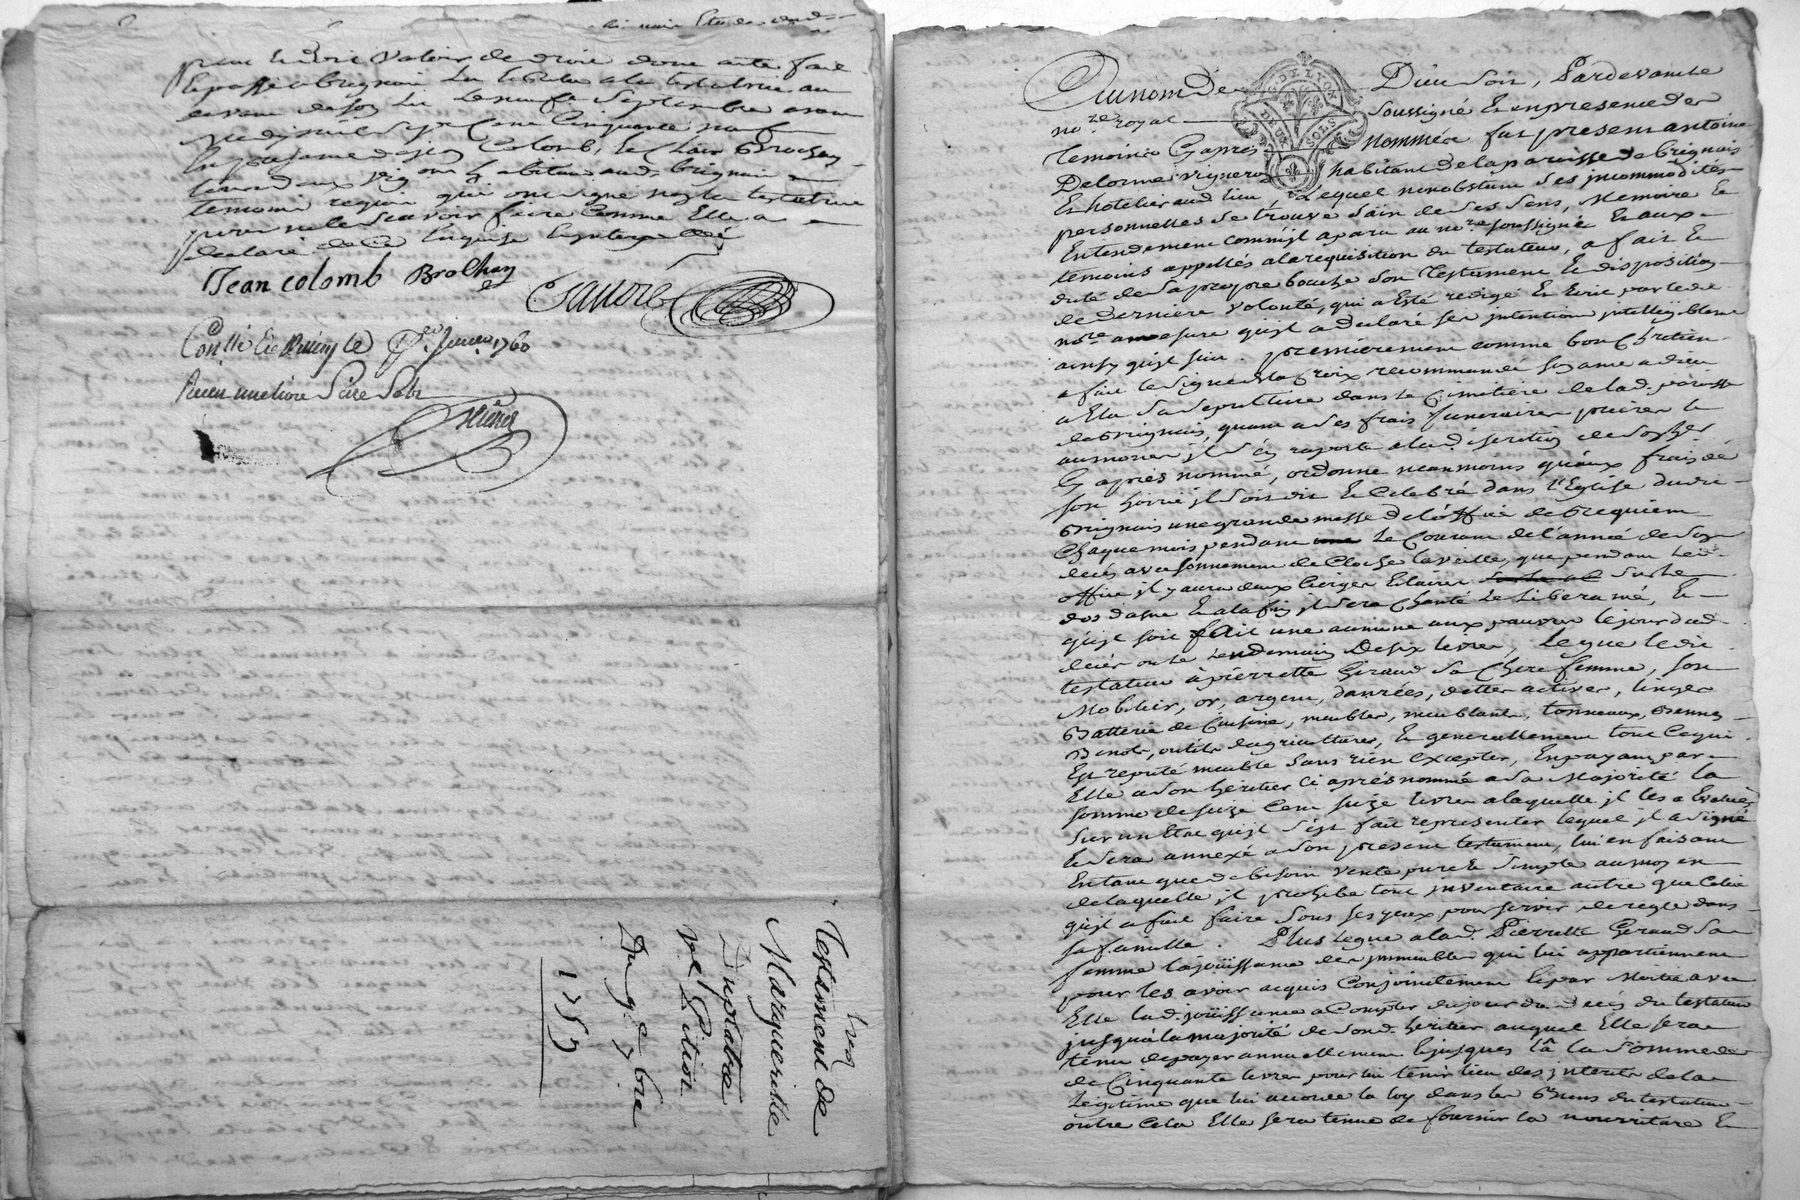 pour
valoir de droit dont acte fait
et passé à Brignais
la testatrice au
le neuf septembre avant
midy mil sept cent cinquante neuf
En présence de Jean Colomb, et Brochay
habitans aud. Brignais
temoins requis qui ont signé non la testatrice
pour ne le scavoir faire comme Elle a
declaré de ce Enquise
Jean colomb Brochay
Conllé 1760
Testament de
Margueritte
Duplatre
ve Pition
Du 9e 7bre
1759
G. DE LYON
DEUX SOLS
Au nom de Dieu Soit, Pardevant le
nore royal soussigné et en presence des
temoins Cy apres nommés, fut present antoine
Delorme vigneron habitant de la paroisse de Brignais
Et hotelier aud. lieu, Lequel nonobstant ses jncommodités
personnelles se trouve sain de ses sens, Memoire Et
Entendement comm'jl a paru au nore soussigné Et aux
temoins appellés a la requisition du testateur, a fait Et
dicté de sa propre bouche son testament Et disposition
de derniere volonté, qui a Esté redigé En Ecrit par led.
nore a mesure qu'jl a declaré ses jntentions jntelligiblement
ainsy qu'jl suit. premierement comme bon Chrêtien
a fait le signe de la Croix recommandé son ame a dieu
a Elu sa sepulture dans le Cimetiere de lad. paroisse
de Brignais, quant a ses frais funeraires prieres Et
aumones jl s'en raporte a la discretion de son her
Cy apres nommé, ordonne neanmoins qu'aux frais de
son hoirie jl soit dit Et Celebré dans l'Eglise dudit
Brignais une grande messe de l'office de Requiem
Chaque mois pendant le Courant de l'année de son
decés avec sonnement de Cloche la veille, que pendant led.
office jl y aura deux Cierges Eclairés sur le
dos d'asne Et a la fin jl sera Chanté Le Libera me, Et
qu'jl soit fait une aumone aux pauvres le jour dud.
decés ou le lendemain De six livres, Legue ledit
testateur a pierrette Giraud sa Chere femme, son
Mobilier, or, argent, danrées, dettes actives, linges
Batterie de Cuisine, meubles, meublants, tonneaux, Bennes
Benots, outils d'agriculture, Et generallement tout Ce qui
Est reputé meuble sans rien Excepter, En payant par
Elle a son heritier Ci aprés nommé a sa Majorité la
somme de seize Cent seize livres a laquelle jl les a Evalués
sur un Etat qu'jl s'est fait representer lequel jl a signé
Et sera annexé a son present testament, lui en faisant
En tant que de besoin vente pure Et simple au moyen
de laquelle jl prohibe tout jnventaire autre que Celui
qu'jl a fait faire sous ses yeux pour servir de regle dans
sa famille. Plus Legue a lad. Pierrette Giraud sa
femme la joüissance des jmmeubles qui lui appartiennent
pour les avoir acquis Conjointement Et par Moitié avec
Elle lad. joüissance a Compter du jour du decés du testateur
jusqu'a la majorité de sond. heritier auquel Elle sera
tenue de payer annuellement Et jusques là la somme
de Cinquante livres pour lui tenir lieu des jnterets de la
Legitime que lui accorde la loy dans les Biens du testateur
outre Cela Elle sera tenue de fournir la nourriture Et